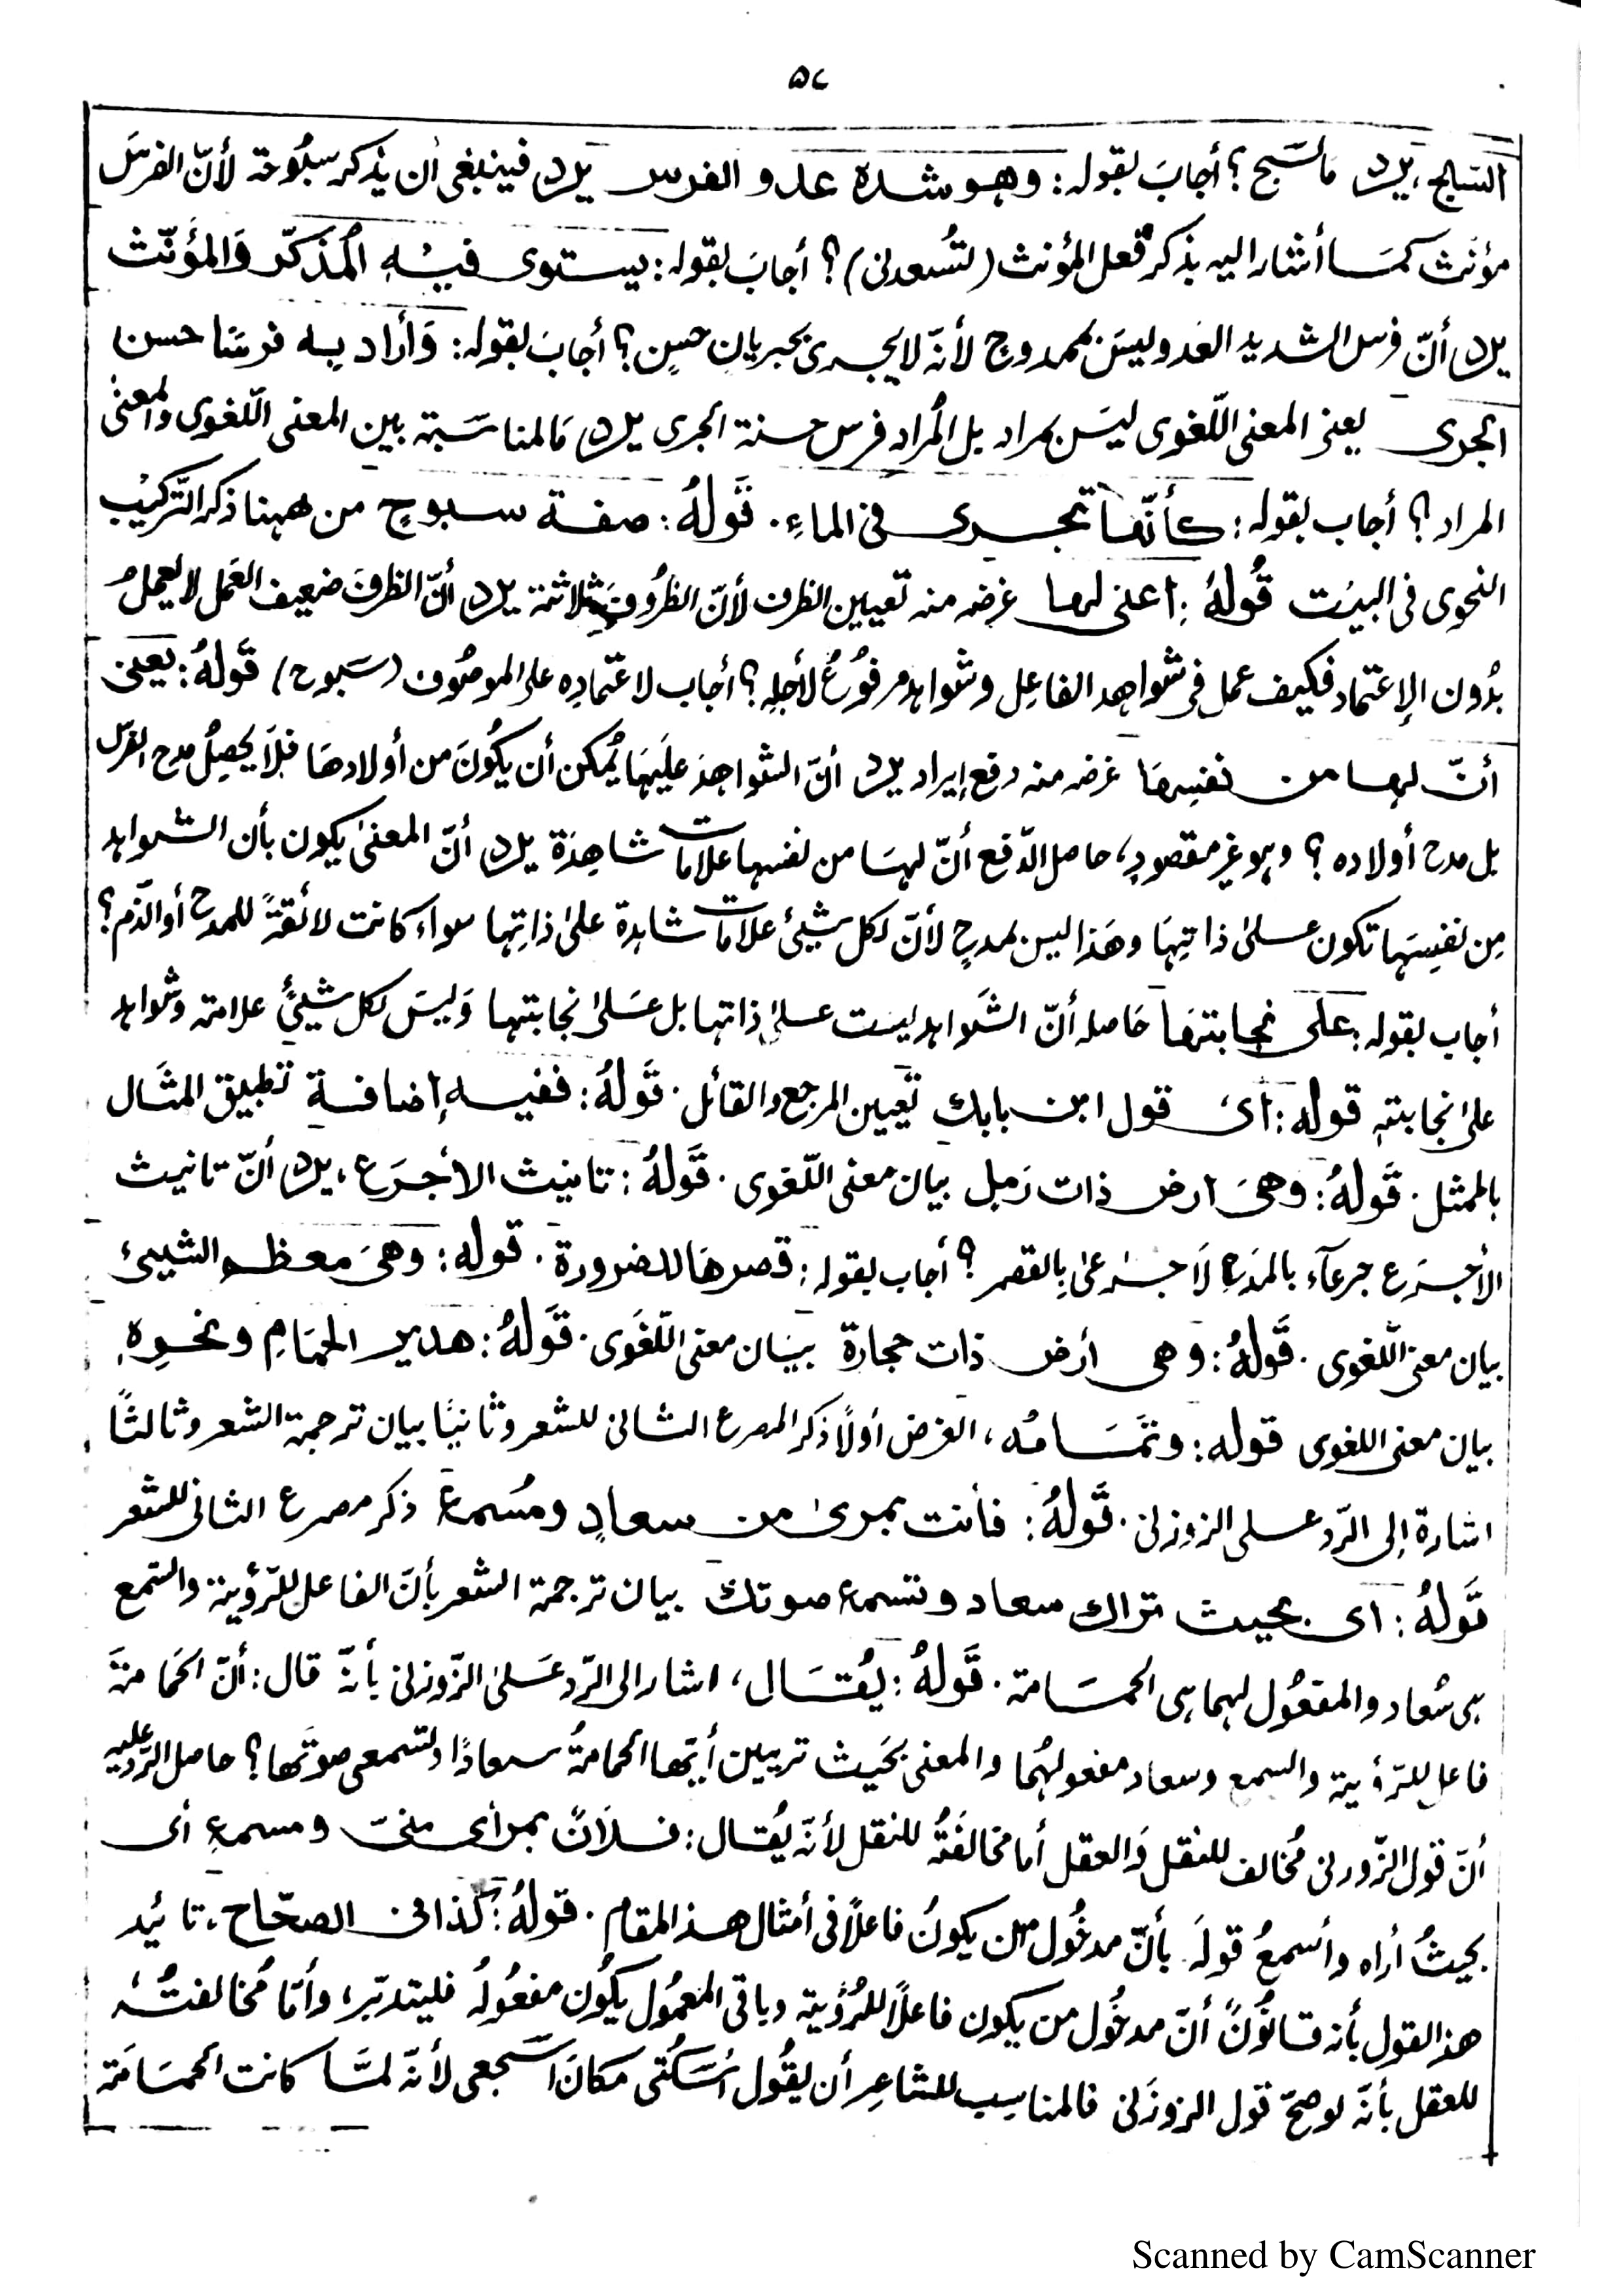 ٥٧
السّابح، يرد ما سَبح؟ أجابَ بقوله: وهو شدة عدو الفرس يرد فينبغى أن يذكر سبُوحة لأنّ الفرسَ
مؤنث كمَا أشار اليه بذكر فعل المؤنث (لتُسعدنى)؟ أجابَ بقوله: يستوى فيْهِ المُذكّر وَالمؤنّث
يرد أنّ فرس الشديد العَدو ليسَ بممدوح لأنّه لا يجرى بجريانٍ حسنٍ؟ أجابَ بقوله: وَأراد به فرسًا حسن
الجرى يعنى المعنى اللّغوى ليسَ بمراد بل المُراد فرس حسنة الجرى يرد مَا لمناسَبة بين المعنى اللّغوى والمعنى
المراد؟ أجاب بقوله: كأنّها تجرى فى الماءِ. قَولهُ: صفة سبوحٍ من ههنا ذكر التَّركيْب
النحوى فى البيَت قُولهُ: اعنى لها غرضه منه تعيين الظرف لأنّ الظرُوفَ ثلاثة يرد أنّ الظرفَ ضعيف العَمل لا يعملُ
بدُون الإعتماد فكيف عمل فى شواهد الفاعِل وشواهد مرفوُعٌ لأجلِه؟ أجاب لاعتمادِه على الموصُوف (سَبوح) قَولهُ: يعنى
أنّ لها من نفسِهَا غرضه منه دفع إيراد يرد أنّ الشواهدَ علَيهَا يُمكن أن يكُونَ من أولادهَا فلَا يحصِلُ مدح الفرس
بل مدح أولاده؟ وهو غير مقصودٍ، حاصل الدّفع أنّ لهَا من نفسها علاماتٍ شاهِدَة يرد أنّ المعنىٰ يكون بأن الشواهد
مِن نفسِهَا تكون علىٰ ذاتِهَا وهَذا ليس بمدحٍ لأنّ لكل شيئ علاماتٍ شاهدة علىٰ ذاتِها سواءَ كانت لائقةً للمدح أو الذّم؟
أجاب بقوله: على نجابتها حَاصله أنّ الشَواهد ليست علىٰ ذاتها بل عَلىٰ نجابتها وَليسَ لكل شيئٍ علامة وشواهد
علىٰ نجابته قوله: أى قول ابن بابك تَعيين المرجع والقائل. قَولهُ: ففيه إضافة تطبيق المثَال
بالممثل. قَولهُ: وهىَ ارض ذات رَمل بيان معنى اللّغوى. قَولهُ: تانيث الاجرَع، يرد أنّ تانيث
الأجرَع جرعآء بالمَدّ لَا جرعىٰ بِالقصر؟ أجاب بقوله: قصرهَا للضرورة. قوله: وهىَ معظم الشيئ
بيان معنى اللّغوى. قَولهُ: وهى أرض ذات حجارة بيَان معنى اللّغَوى. قَولهُ: هدير الحمَامِ ونحوِه
بيان معنى اللغوى قوله: وتمَامُه، الغرض أولًا ذكر المصرع الثانى للشعر وثانيًا بيان ترجمة الشعر وثالثًا
اشارة إلى الرّد على الزوزنى. قَولهُ: فأنت بمرىٰ من سعادٍ ومُسمع ذكر مصرع الثانى للشعر
قَولهُ: اى بحيث تراك سعاد وتسمع صوتك بيان ترجمة الشعر بأنّ الفاعل للرّؤية والسّمع
هى سُعاد والمفعُول لهما هى الحمَامة. قَولهُ: يُقَال، اشار الى الرّد عَلىٰ الزّوزنى بأنّه قال: أنّ الحَمامةَ
فاعل للرّؤية والسمع وسعاد مفعولهُما والمعنى بحَيث تريين أيّها الحمامةُ سعادًا وتسمعى صوتَها؟ حاصل الرّد عليه
أنّ قول الزّوزنى مُخالف للنقل وَالعقل أما مخالفَتُه للنقل لأنّه يُقال: فلَانٌ بمرأى منىّ ومسمعٍ أى
بحيثُ أراه وأسمعُ قولَه بأنّ مدخُول من يكونُ فاعلًا فى أمثال هذ المقام. قولهُ: كذا فى الصحّاح، تائيد
هذ القول بأنه قانُونٌ أنّ مدخُول من يكون فاعلًا للرُؤية وباقى المعمُول يكُون مفعُولُه فليتدبّر، وأمّا مُخالفتُهُ
للعقل بأنّه لو صحّ قول الزوزَنى فالمناسِب للشاعِر أن يقُول أسْكتى مَكانَ اسجعى لأنّه لمّا كانت الحمَامَة
Scanned by CamScanner